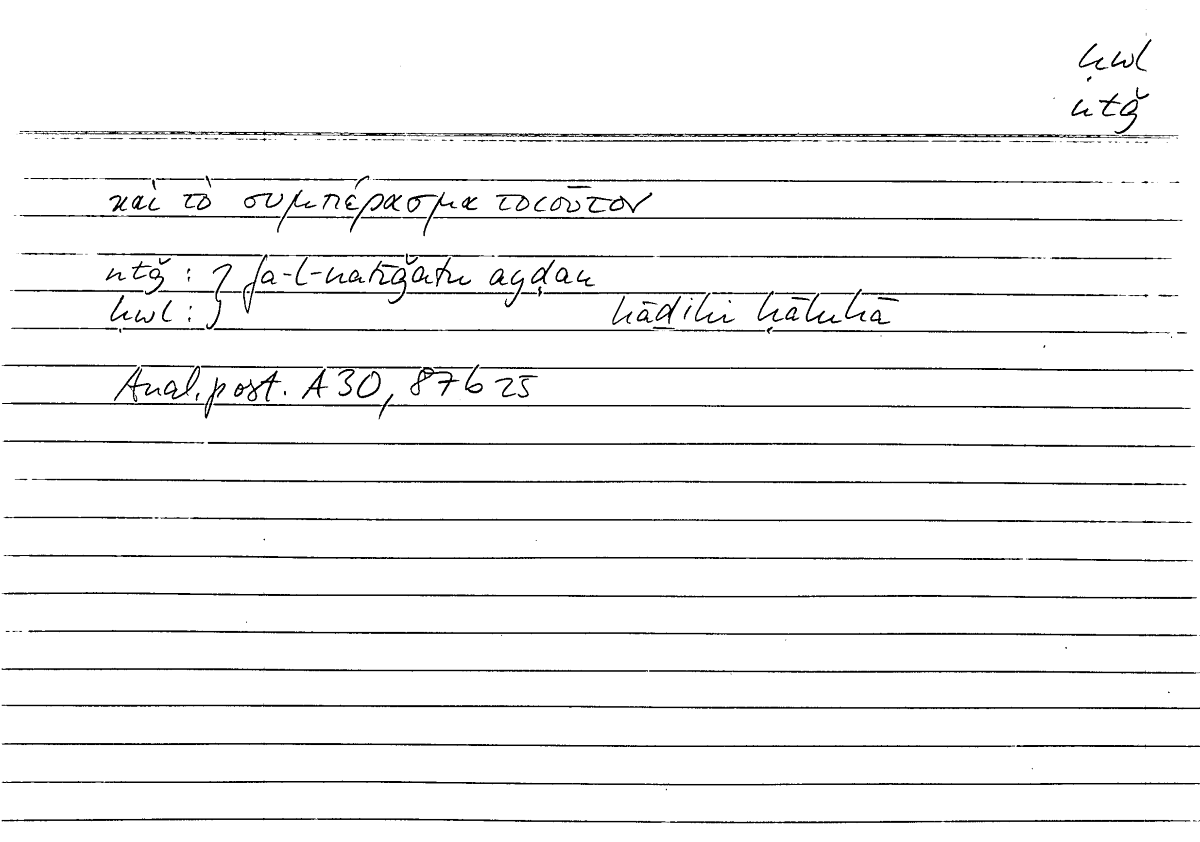 ḥwl
ntǧ
καὶ τὸ συμπέρασμα τοιοῦτον
ntǧ : } fa-l-natīǧatu ayḍan
ḥwl : } hāḏihi ḥāluhā
Anal. post. A 30, 87 b 25